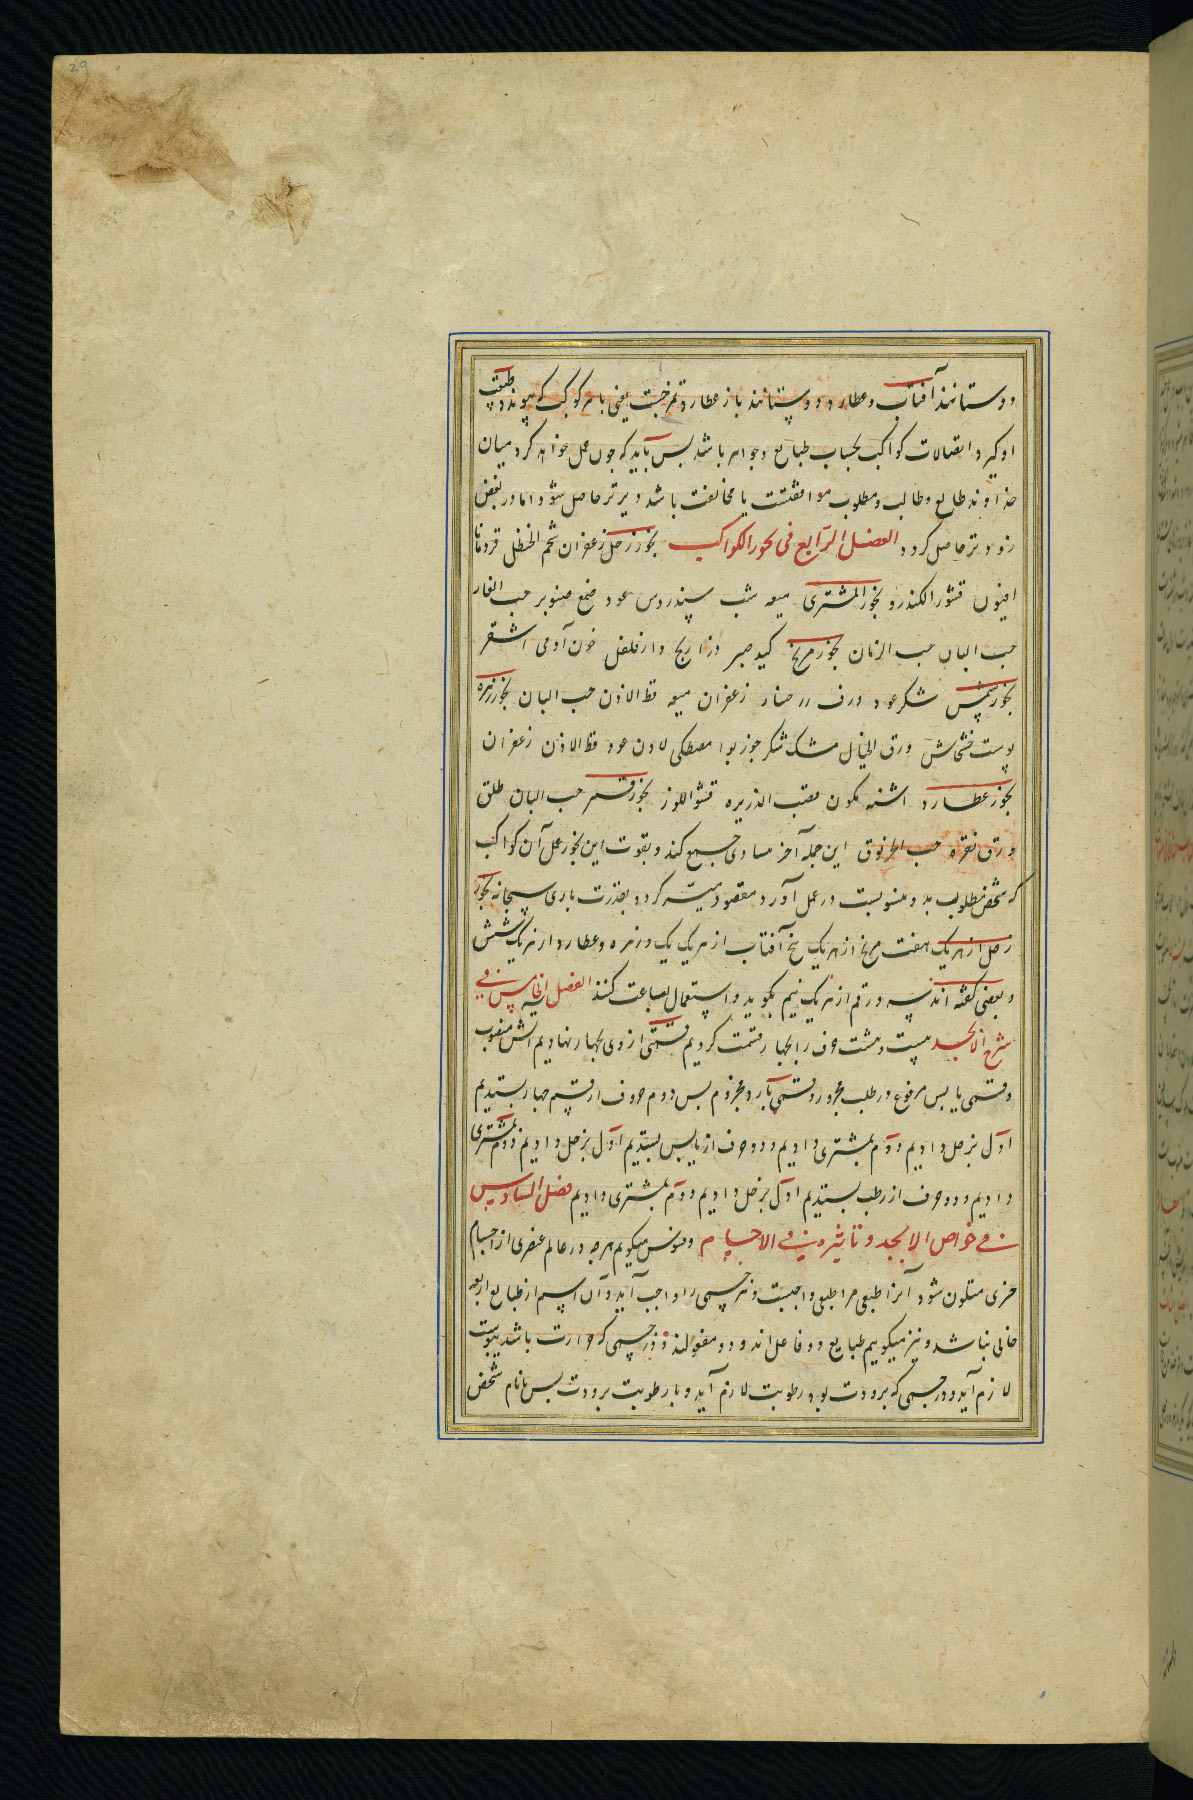 29
دوستانند آفتاب و عطارد دوستانند باز عطارد ممزجست یعنی با هر کوکب که پیوندد طبیعت
او گیرد اتصالات کواکب بحساب طبایع و جواهر باشد پس باید که چون عمل خواهد کرد میان
خداوند طالع و طالب و مطلوب موافقتست یا مخالفت باشد دیرتر حاصل شود اما در بعض
زودتر حاصل کردد الفصل الرابع فی بخور الکواکب بخور زحل زعفران شحم الحنظل قردمانا
افیون قشور الکندر و بخور المشتری میعه شب سندروس عود صمغ صنوبر حب الغار
حب البان حب الرمان بخور مریخ صبر دارفلفل خون آدمی اشقر
بخور شمس شکر عود ورق زعفران میعه حب البان بخور زهره
پوست خشخاش ورق مشک شکر جوزبوا مصطکی لادن عود زعفران
بخور عطارد اشنه کمون قصب الذریره قشور اللوز بخور قمر حب البان طلق
ورق نقره حب این جمله آخر مساوی جمع کند و بقوت این بخور عمل آن کواکب
که شخص مطلوب بدو منسوبست در عمل آورد مقصود میسر کردد بقدرت باری سبحانه بخور
زحل از هر یک هفت مریخ از هر یک پنج آفتاب از هر یک یک و زهره و عطارد از هر یک شش
و بعضی کفته اند سه ورقم از هر یک نیم بکوبد و استعمال بساعت کند الفصل الخامس فی
شرح الابجد بیست و هشت حرف را بچهار قسمت کردیم قسمتی از وی بچهار نهادیم آتش منصوب
و قسمی یابس مرفوع و رطب مجرور و قسمی بارد مجزوم پس دوم حروف از قسم حار بستدیم
اول بزحل دادیم دوم بمشتری دادیم و دو حرف از یابس بستدیم اول بزحل دادیم و دوم بمشتری
دادیم و دو حرف از رطب بستدیم اول بزحل دادیم دوم بمشتری دادیم فصل السادس
فی خواص الابجد و تاثیره فی الاجسام میکویم هرچه در عالم عنصری از اجسام
چیزی متلون شود آنرا طبعی واجبست و هر جسمی را واجب آید و آن اسم از طبایع اربعه
خالی نباشد و نیز میکوییم طبایع دو فاعل اند و دو مفعولند و در جسمی که حرارت باشد یبوست
لازم آید و در جسمی که برودت بود رطوبت لازم آید و با رطوبت برودت پس نام شخص